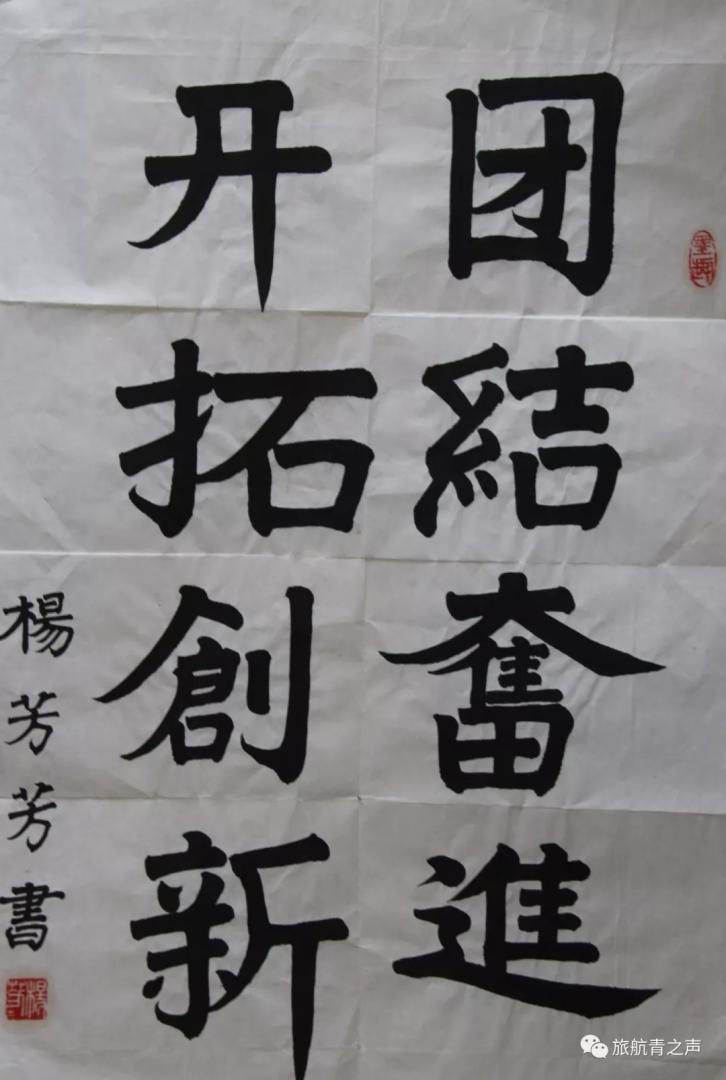 团結奮進
开拓創新
楊芳芳書
旅航青之声